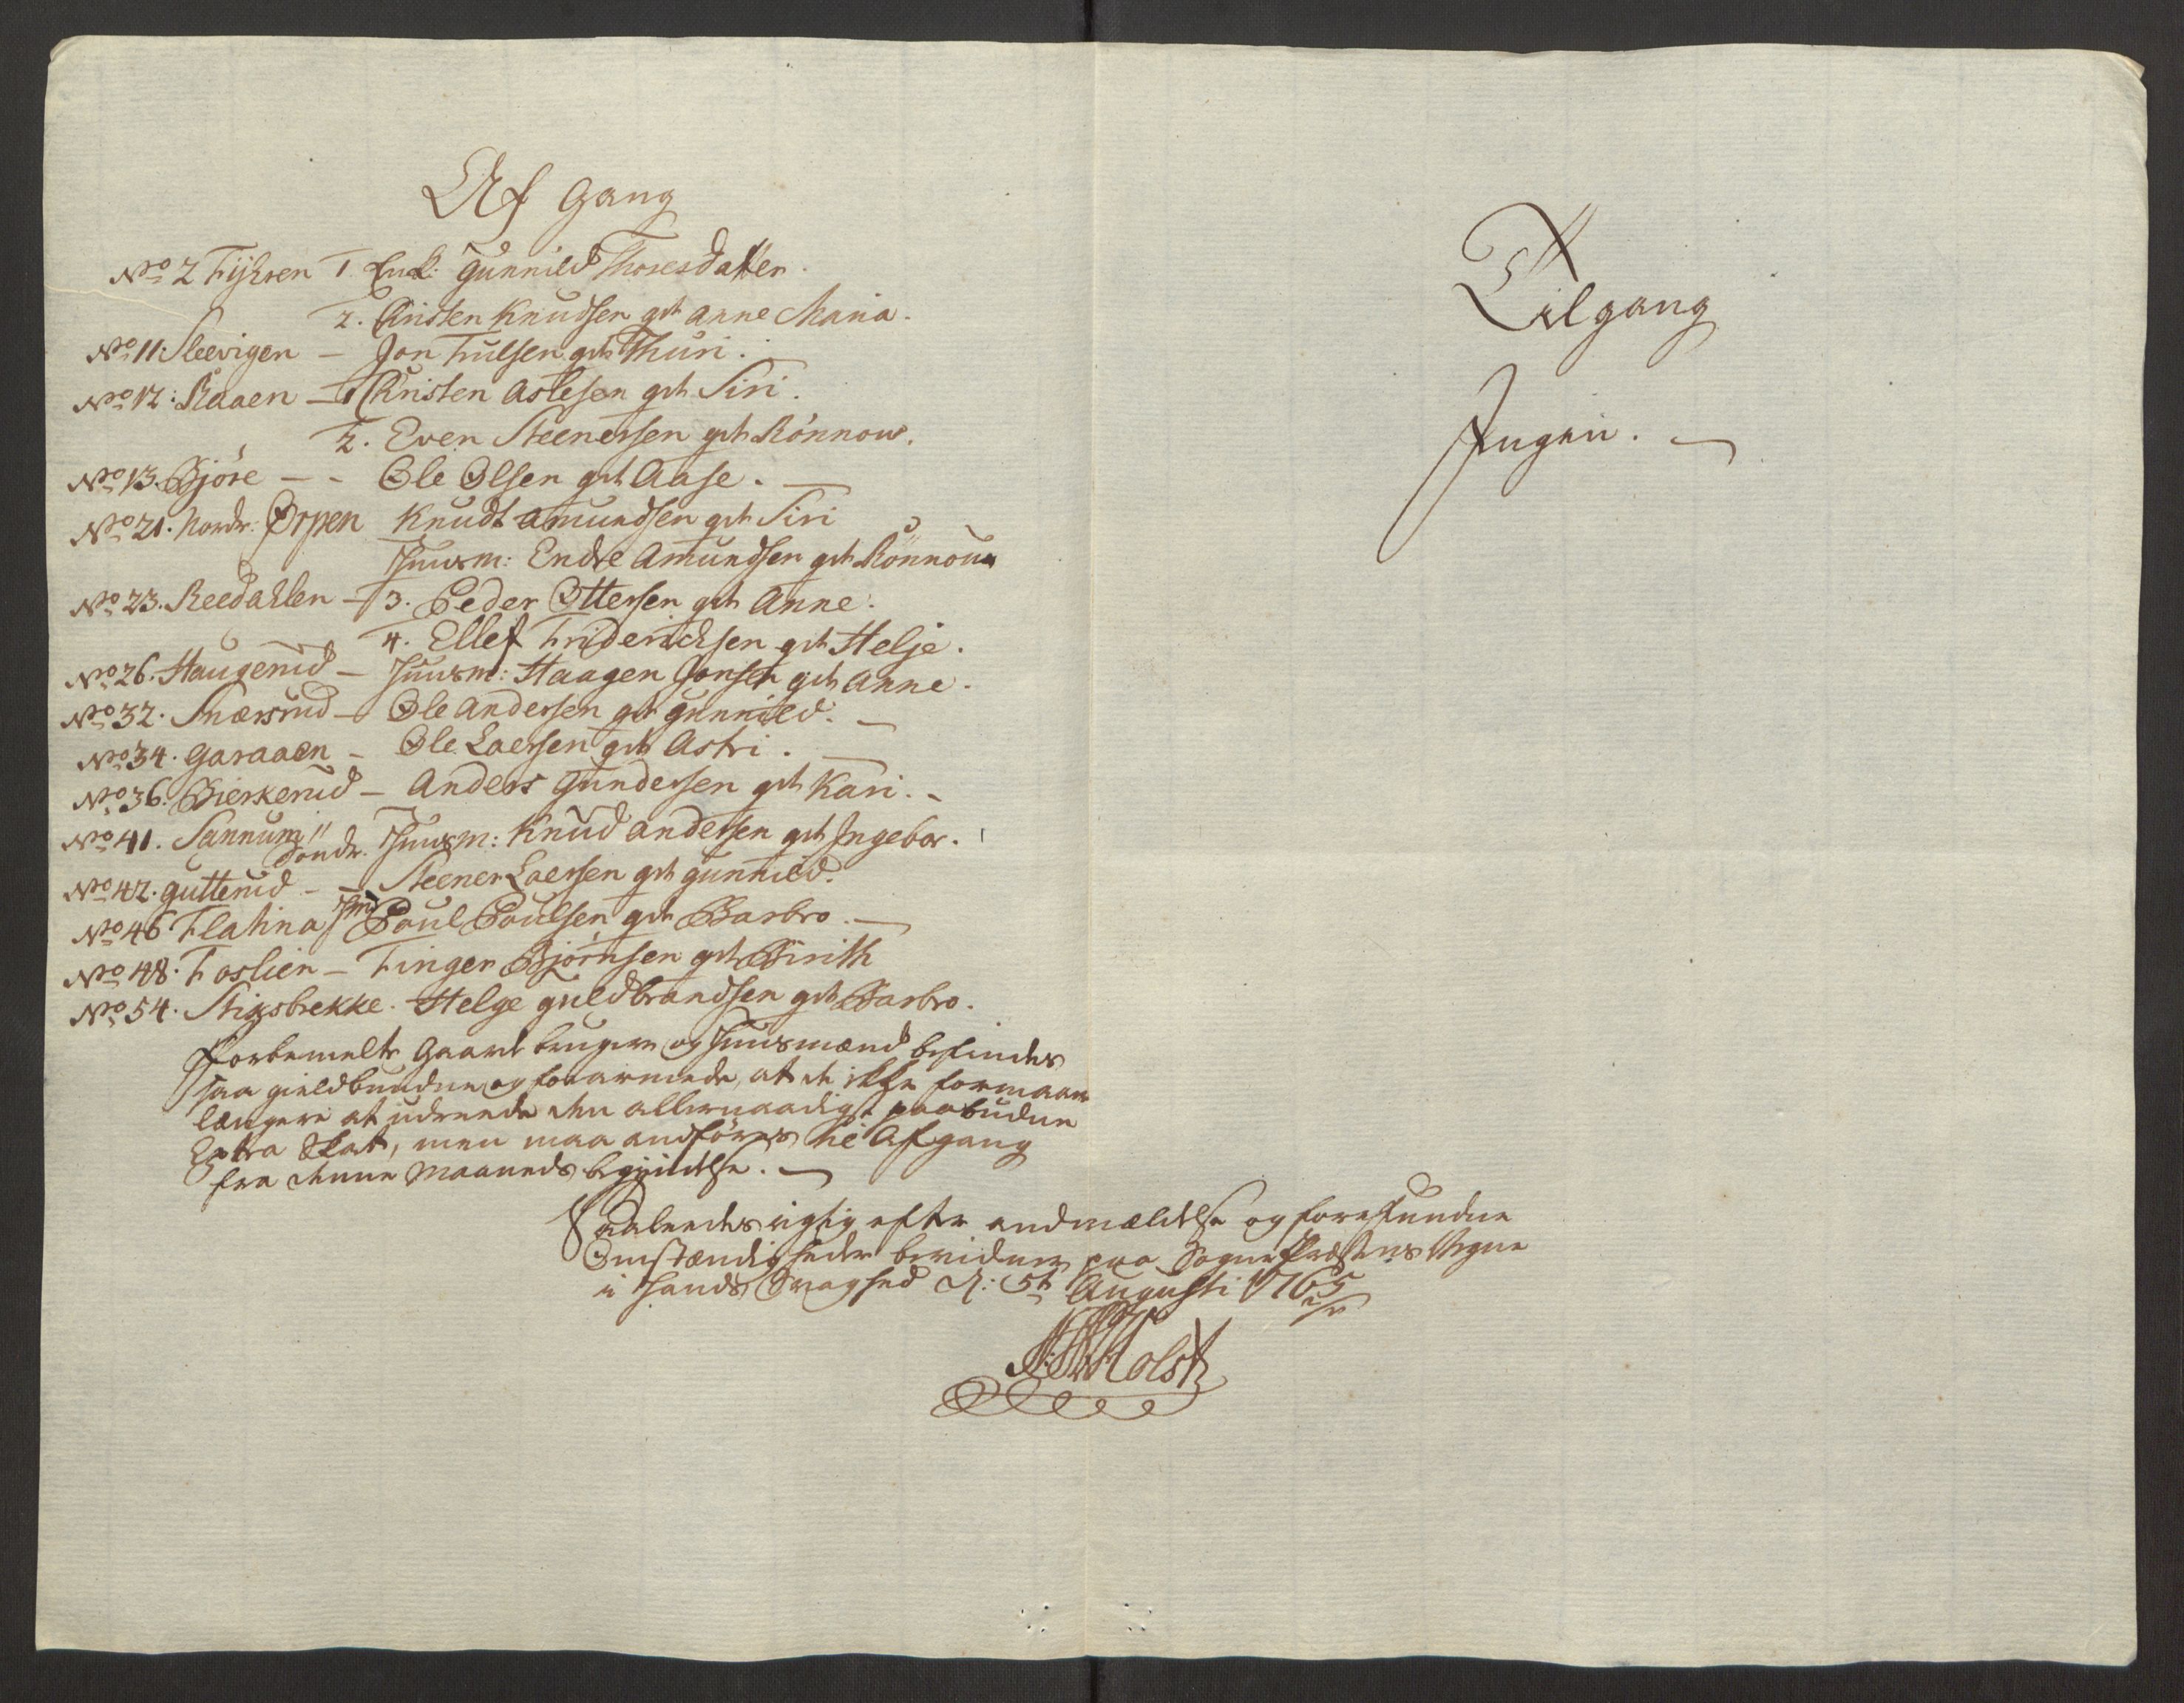 Af Gang
No 2 Fijhren 1. Enk: Gunnild Thoresdatter.
2. Christen Knudsen gvt Anne Maria.
No 11. Sleevigen – Jon Fulsen gvt Thuri.
No 12: Raaen – 1 Christen Aslesen gvt Siri.
2. Even Steenersen gvt Rönnow.
No 13. Björe – – Ole Olsen gvt Aase. –
No 21. Nordr: Ørpen Knudt Amundsen gvt Siri
Huusm: Endre Amundsen gvt Rönnoug
No 23. Reedahlen – 3. Peder Ottersen gvt Anne.
4. Ellef Friderichsen gvt Helje.
No 26. Haugerud – Huusm: Haagen Jonsen gvt Anne.
No 32. Snærsrud – Ole Andersen gvt Gunnild. –
No 34. Garaaen – Ole Laersen gvt Astri. –
No 36. Bierkerud – Anders Gundersen gvt Kari. –
No 41. Sannum söndr. Huusm: Knud Andersen gvt Ingebor.
No 42. Gutterud – – Steener Laersen gvt Gunnild.
No 46 Flatina Hmd Poul Poulsen gvt Barbro. –
No 48. Foslien – Finger Bjørnsen gvt Birith
No 54. Stixsbrekke. Helge Guldbrandsen gvt Barbro.
Forbemelte Gaard brugere og Huusmænd befindes
saa gieldbundne og forarmede, at de ikke formaar
længere at udreede den allernaadigst paabudne
Extra Skat, men maa andføres til Afgang
fra denne Maaneds begyndelse. –
Saaledes rigtig efter andmældelse og forefundne
Omstændigheder bevidner paa Sogne Præstens Vegne
i Hands Svaghed d: 5t Augusti 1765
Holst
Tilgang
Ingen. –